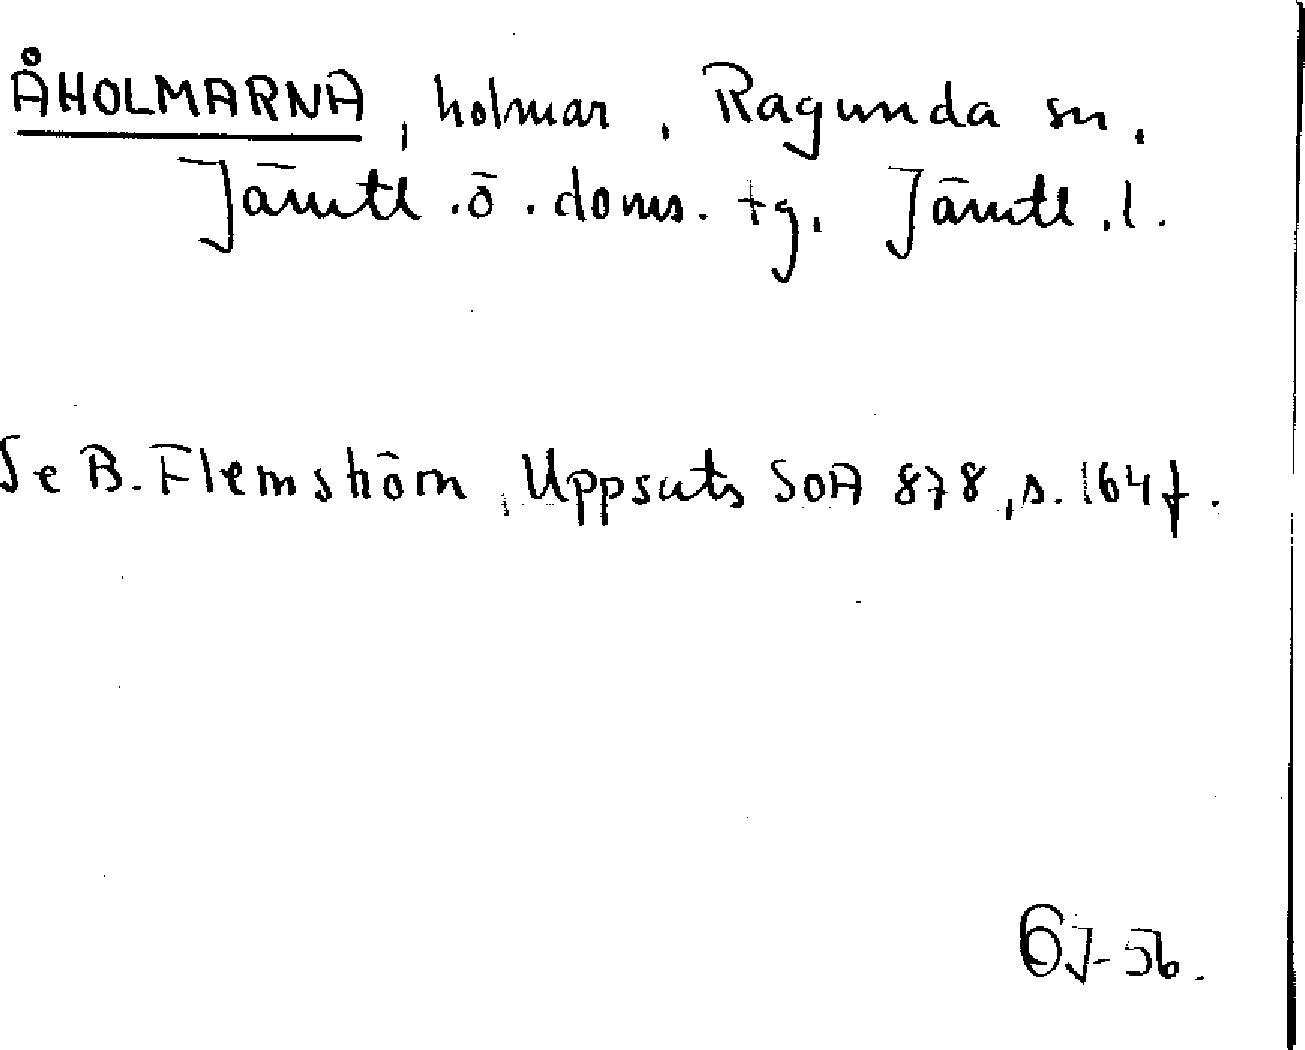 ÅHOLMARNA, holmar, Ragunda sn,
Jämtl.ö.doms.tg, Jämtl.l.
Se B.Flemström, Uppsats SOA 878, s. 164f.
GJ-56.